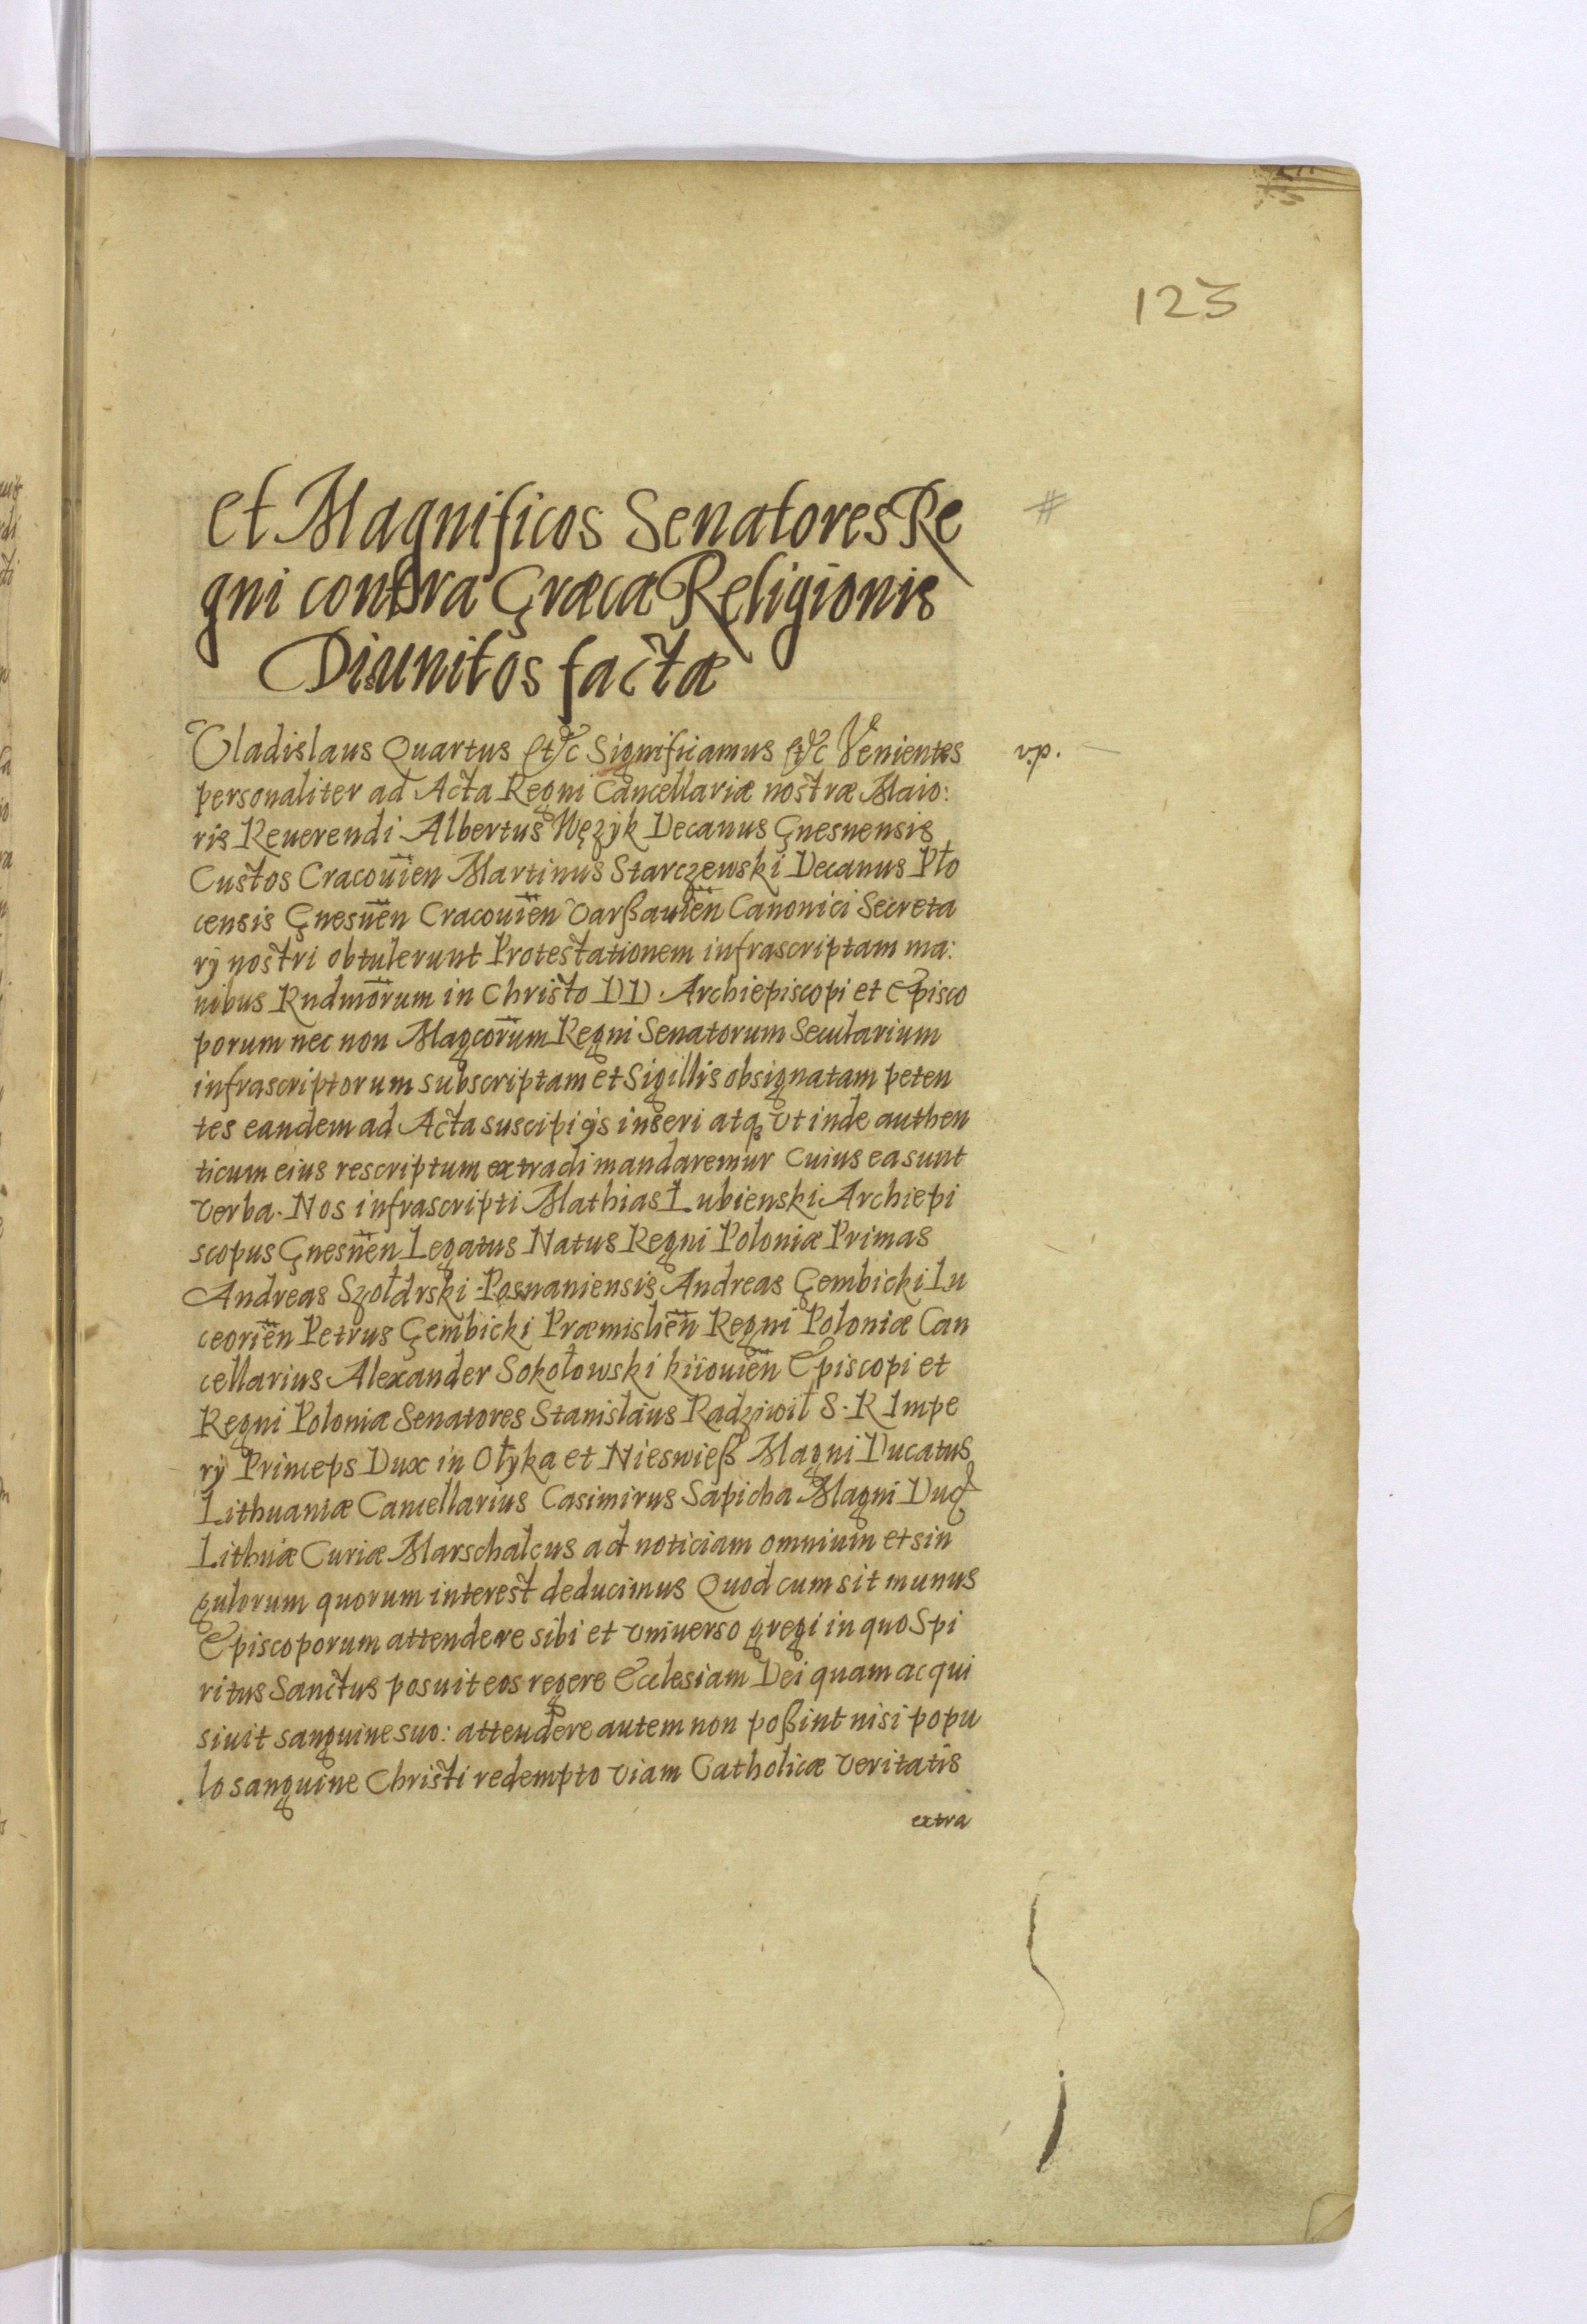 123
Et Magnificos Senatores Re
gni contra Græca Religionis
Disunitos factæ
#
Vladislaus Quartus Etc Significamus Etc Venientes
v.p.
personaliter ad Acta Regni Cancellariæ nostræ Maio:
ris Reuerendi Albertus Wężyk Decanus Gnesnensis
Custos Cracouien Martinus Starczewski Decanus Plo
censis Gnesnen Cracouien Varßauien Canonici Secreta
rÿ nostri obtulerunt Protestationem infrascriptam ma:
nibus Rndmorum in Christo DD. Archiepiscopi et Episco
porum nec non Magcorum Regni Senatorum Secularium
infrascriptorum subscriptam et Sigillis obsignatam peten
tes eandem ad Acta suscipi ijs inseri atq̨ vt inde authen
ticum eius rescriptum extradi mandaremur Cuius ea sunt
verba. Nos infrascripti Mathias Łubienski Archiepi
scopus Gnesnen Legatus Natus Regni Poloniæ Primas
Andreas Szołdrski Posnaniensis Andreas Gembicki Lu
ceorien Petrus Gembicki Præmislien Regni Poloniæ Can
cellarius Alexander Sokołowski kiiouien Episcopi et
Regni Poloniæ Senatores Stanislaus Radziwił S. R Impe
rÿ Princeps Dux in Ołyka et Nieswieß Magni Ducatus
Lithuaniæ Cancellarius Casimirus Sapieha Magni Duc
Lithuiæ Curiæ Marschalcus ad noticiam omnium et sin
gulorum quorum interest deducimus Quod cum sit munus
Episcoporum attendere sibi et vniuerso gregi in quo Spi
ritus Sanctus posuit eos regere Ecclesiam Dei quam acqui
siuit sanguine suo: attendere autem non poßint nisi popu
lo sanguine Christi redempto viam Catholicæ veritatis
extra